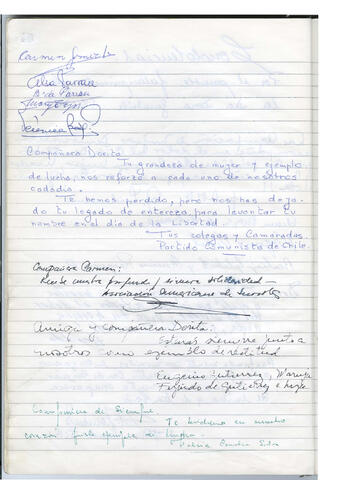 Carmen
Celia Parrau
Ana Parrau
Compañera Dorita
Tu grandeza de mujer y ejemplo
de lucha, nos reforzo a cada uno de nosotros
cada dia.
Te hemos perdido, pero nos has deja-
do tu legado de entereza, para levantar tu
nombre en el dia de la libertad.
Tus colegas y Camaradas.
Partido Comunista de Chile.
Compañera Carmen:
Recibe nuestra profunda y sincera solidaridad -
Asociación Americana de Juristas
Amiga y compañera Dorita:
Estarás siempre junto a
nosotros como ejemplo de rectitud
Eugenio Gutierrez,
de Gutierrez e hijos
Compañera de siempre.
Te tendremos en nuestro
corazón ejemplo de